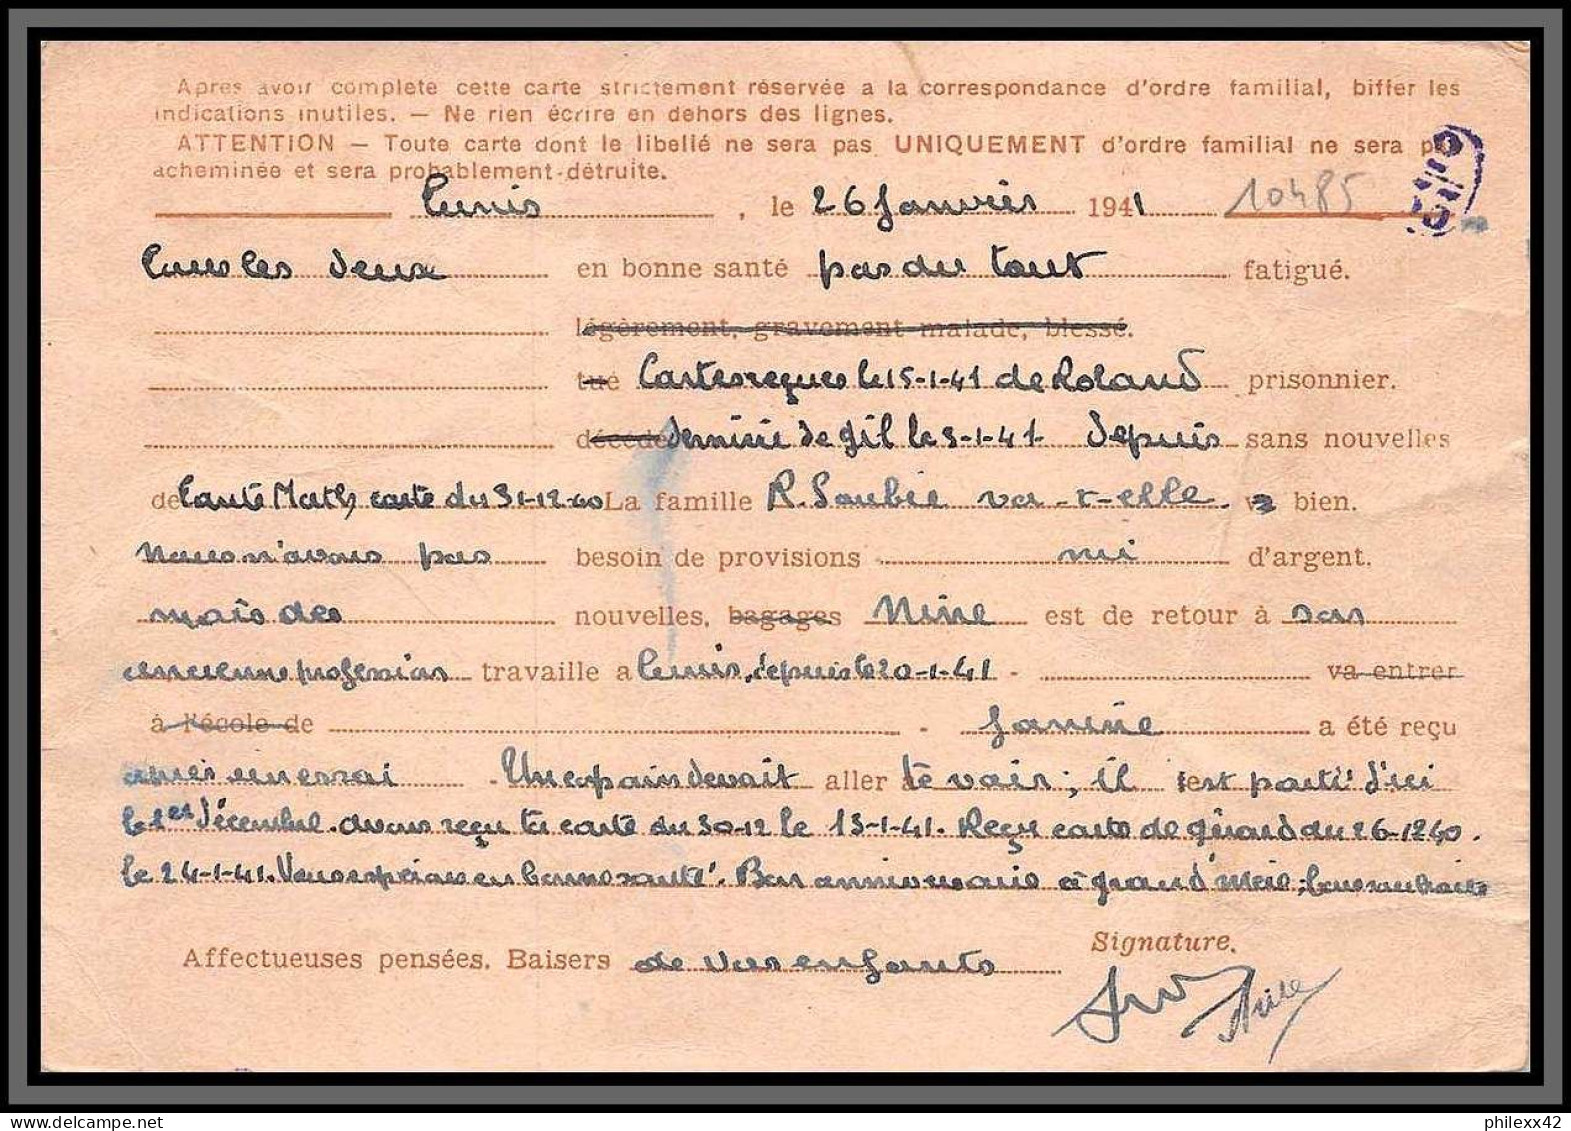 Après avoir complété cette carte strictement réservée a la correspondance d'ordre familial, biffer les
indications inutiles. — Ne rien écrire en dehors des lignes.
ATTENTION — Toute carte dont le libellé ne sera pas UNIQUEMENT d'ordre familial ne sera p
acheminée et sera probablement détruite.
Tunis, le 26 Janvier 1941 10485
Tous les deux en bonne santé pas du tout fatigué.
légèrement, gravement malade, blessé.
tué Cartes reçues le 15-1-41 de Roland prisonnier.
décédé dernière de Gil le 3-1-41 Depuis sans nouvelles
de Tante Math, carte du 31-12-40 La famille R. Soubie va-t-elle bien.
Nous n'avons pas besoin de provisions ni d'argent.
mais des nouvelles, bagages Nine est de retour à son
ancienne profession travaille a Tunis, depuis le 20-1-41 - va entrer
à l'école de - Janine a été reçu
après un essai - Un copain devait aller à te voir; il est parti d'ici
le 1er Décembre. Avons reçu ta carte du 30-12 le 13-1-41. Reçu carte de Gérard du 26-12 40.
le 24-1-41. Vous espérons en bonne santé. Bon anniversaire à grand'Mère;
Affectueuses pensées. Baisers de vos enfants Signature.
philexx42